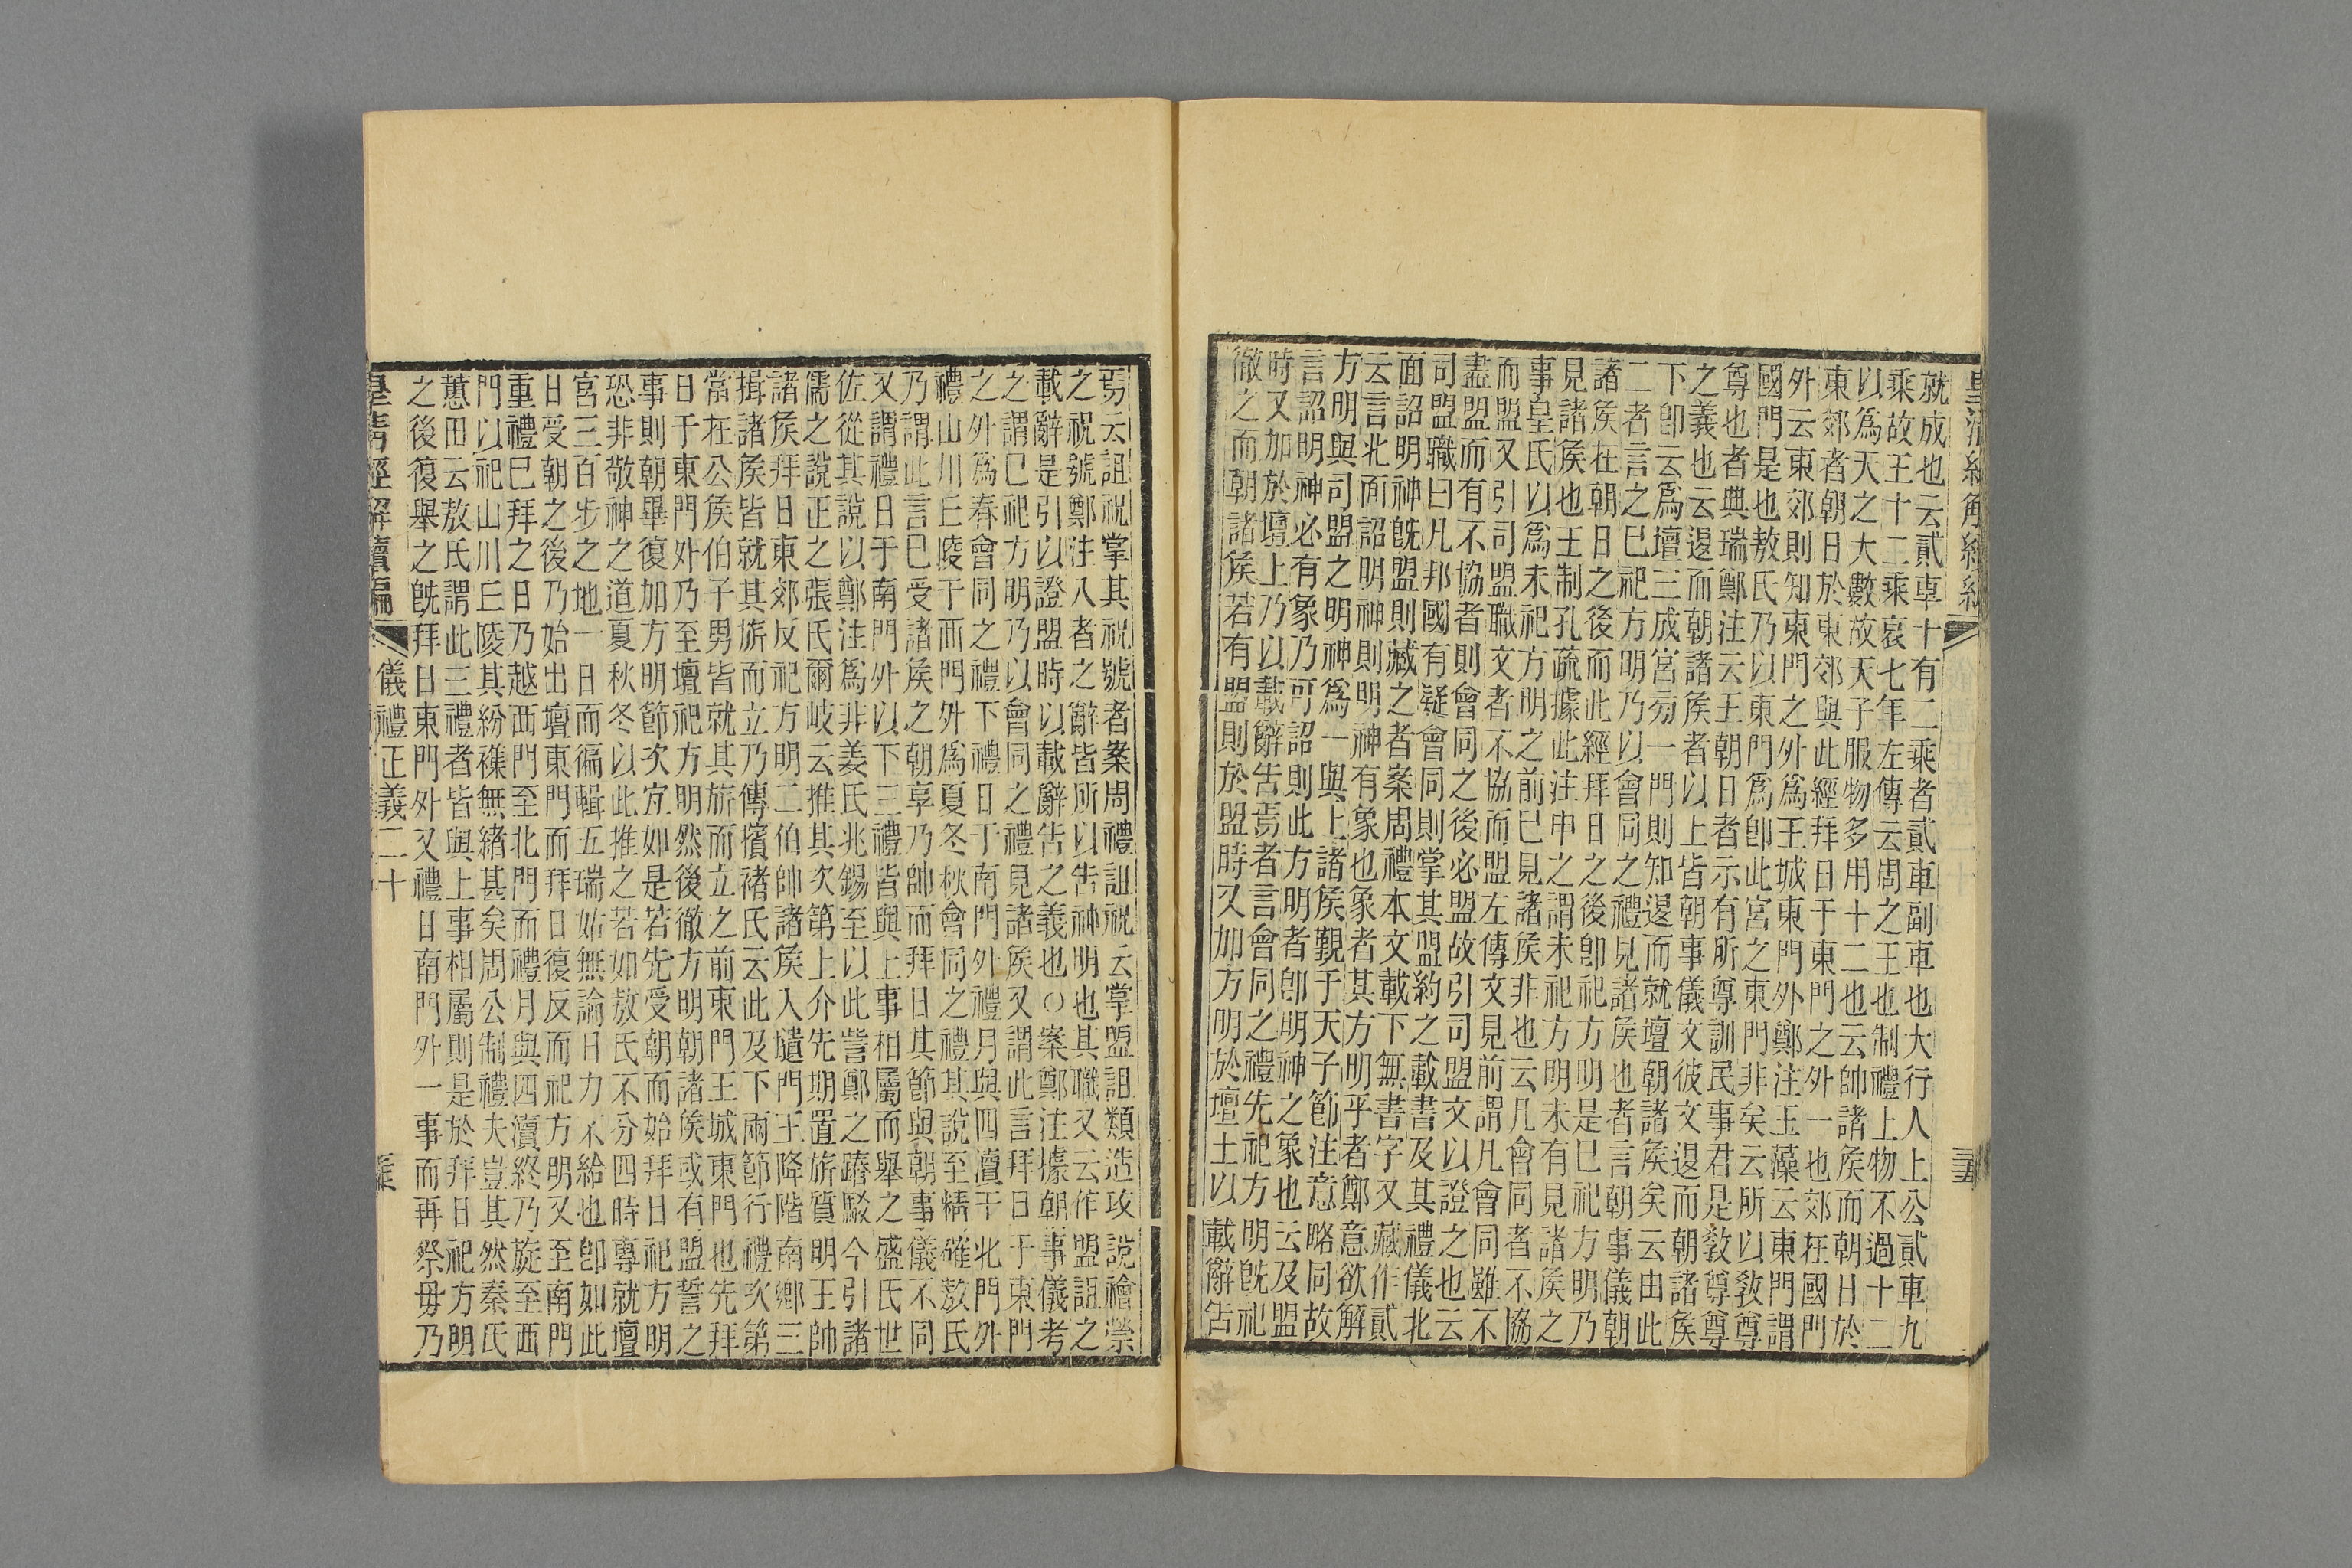 就成也云貳車十有二乘者貳車副車也大行人上公貳車九
乘故王十二乘哀七年左傳云周之王也制禮上物不過十二
以爲天之大數故天子服物多用十二也云帥諸矦而朝日於
東郊者朝日於東郊與此經拜日于東門之外一也郊在國門
外云東郊則知東門之外爲王城東門外鄭注玉藻云東門謂
國門是也敖氏乃以東門爲卽此宮之東門非矣云所以敎尊
尊也者典瑞鄭注云王朝日者示有所尊訓民事君是敎尊尊
之義也云退而朝諸矦者以上皆朝事儀文彼文退而朝諸矦
下卽云爲壇三成宮㫄一門則知退而就壇朝諸矦矣云由此
二者言之已祀方明乃以會同之禮見諸矦也者言朝事儀朝
諸矦在朝日之後而此經拜日之後卽祀方明是已祀方明乃
見諸矦也王制孔疏據此注申之謂未祀方明未有見諸矦之
事皇氏以爲未祀方明之前已見諸矦非也云凡會同者不協
而盟又引司盟職文者不協而盟左傳文見前謂凡會同雖不
盡盟而有不協者則會同之後必盟故引司盟文以證之也云
司盟職曰凡邦國有疑會同則掌其盟約之載書及其禮儀北
面詔明神旣盟則藏之者案周禮本文載下無書字又藏作貳
云言北面詔明神則明神有象也象者其方明乎者鄭意欲解
方明與司盟之明神爲一與上諸矦覲于天子節注意略同故
言詔明神必有象乃可詔則此方明者卽明神之象也云及盟
時又加於壇上乃以載辭告焉者言會同之禮先祀方明旣祀
徹之而朝諸矦若有盟則於盟時又加方明於壇上以載辭告
焉云詛祝掌其祝號者案周禮詛祝云掌盟詛類造攻說禬禜
之祝號鄭注八者之辭皆所以告神明也其職又云作盟詛之
載辭是引以證盟時以載辭告之義也○案鄭注據朝事儀考
之謂已祀方明乃以會同之禮見諸矦又謂此言拜日于東門
之外爲春會同之禮下禮日于南門外禮月與四瀆于北門外
禮山川丘陵于西門外爲夏冬秋會同之禮其說至精確敖氏
乃謂此言已受諸矦之朝享乃帥而拜日其節與朝事儀不同
又謂禮日于南門外以下三禮皆與上事相屬而舉之盛氏世
佐從其說以鄭注爲非姜氏兆錫至以此訾鄭之踳駁今引諸
儒之說正之張氏爾岐云推其次第上介先期置旂質明王帥
諸矦拜日東郊反祀方明二伯帥諸矦入壝門王降階南鄉三
揖諸矦皆就其旂而立乃傳擯褚氏云此及下兩節行禮次第
當在公矦伯子男皆就其旂而立之前東門王城東門也先拜
日于東門外乃至壇祀方明然後徹方明朝諸矦或有盟誓之
事則朝畢復加方明節次宜如是若先受朝而始拜日祀方明
恐非敬神之道夏秋冬以此推之若如敖氏不分四時專就壇
宮三百步之地一日而徧輯五瑞姑無論日力不給也卽如此
日受朝之後乃始出壇東門而拜日復反而祀方明又至南門
重禮已拜之日乃越西門至北門而禮月與四瀆終乃旋至西
門以祀山川丘陵其紛襍無緒甚矣周公制禮夫豈其然秦氏
蕙田云敖氏謂此三禮者皆與上事相屬則是於拜日祀方明
之後復舉之旣拜日東門外又禮日南門外一事而再祭毋乃
皇清經解續編 儀禮正義二十